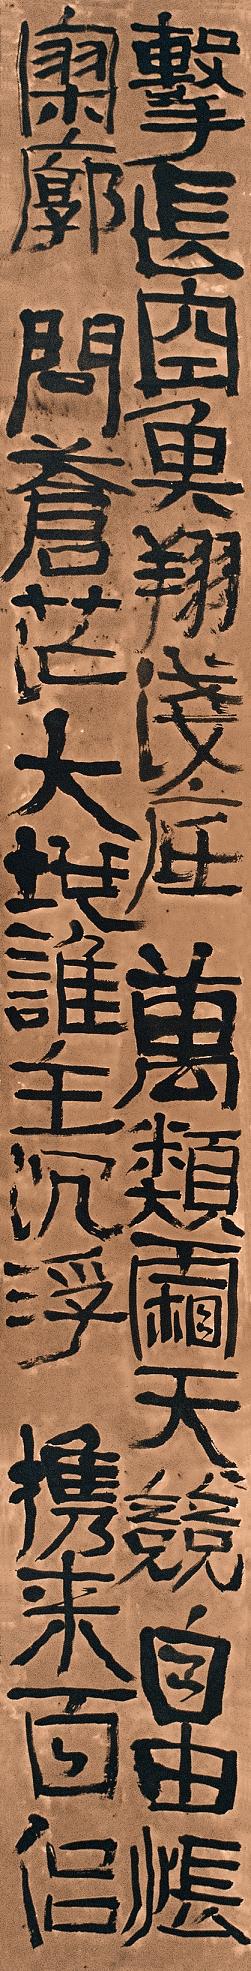 擊長空魚翔淺底 萬類霜天競自由悵
寥廓 問蒼茫大地誰主沉浮 携来百侣